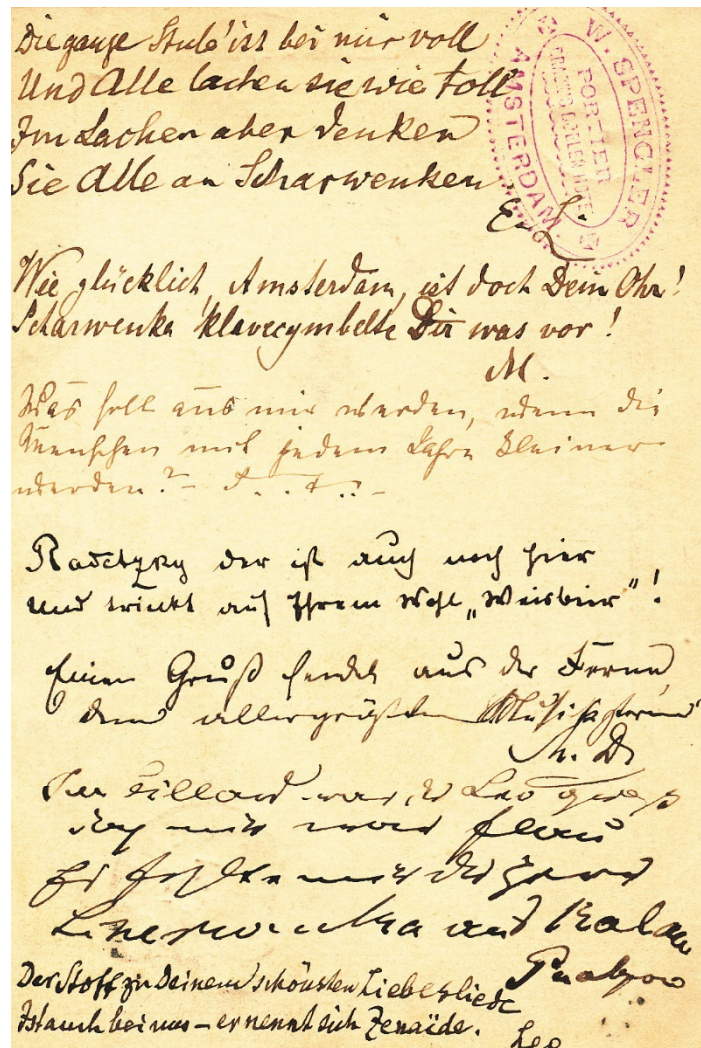 Die ganze Stub' ist bei mir voll
Und Alle lachen sie wie toll
Im Lachen aber denken
Sie Alle an Scharwenken
E. L.
W. SPENGLER
PORTIER
AMSTERDAM
Wie glücklich, Amsterdam, ist doch Dein Ohr!
Scharwenka klavecymbelte Dir was vor!
M.
Was soll aus mir werden, wenn die
Menschen mit jedem Jahre kleiner
werden? –
Radetzky der ist auch noch hier
und trinkt auf Ihrem Wohl „Weisbier"!
Einen Gruß sendet aus der Ferne
dem allergrößten
Im Billard war der Leo
mir war flau
Es fehlte mir der
und
Der Stoff zu Deinem schönsten Liebesliede
Ist auch bei uns – er nennt sich Zenaïde.
Leo